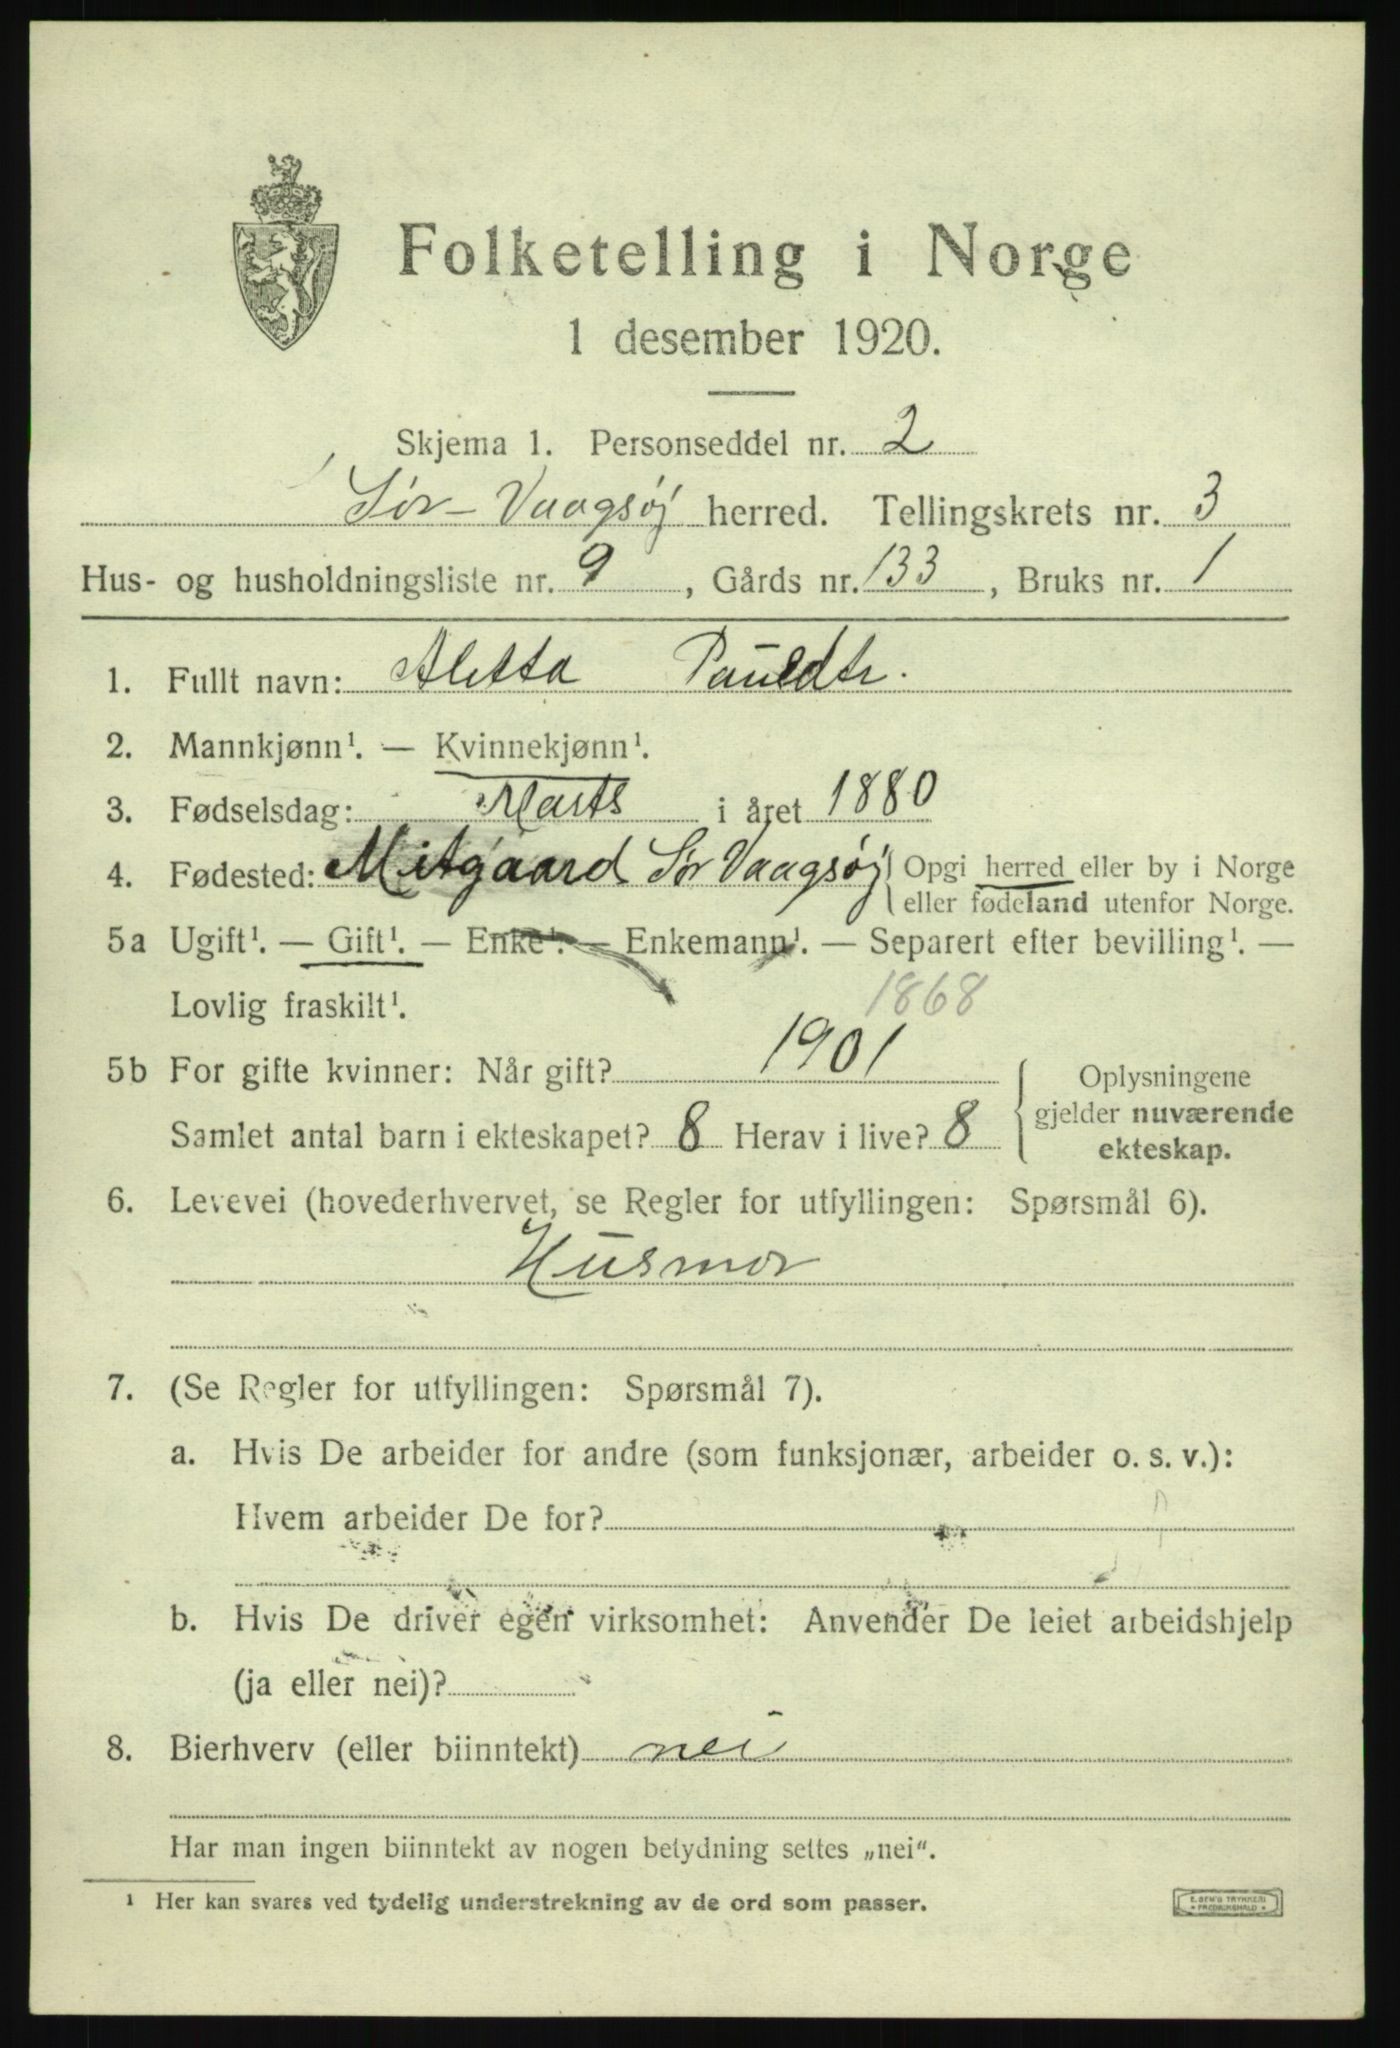 Folketelling i Norge
1 desember 1920.
Skjema 1. Personseddel nr. 2
Sør-Vaagsøj herred. Tellingskrets nr. 3
Hus- og husholdningsliste nr. 9, Gårds nr. 133, Bruks nr. 1
1. Fullt navn: Aletta Paulsdtr.
2. Mannkjønn¹. — Kvinnekjønn¹.
3. Fødselsdag: Marts i året 1880
4. Fødested: Mitgaard Sør Vaagsøj { Opgi herred eller by i Norge
eller fødeland utenfor Norge.
5a Ugift¹. — Gift¹. — Enke¹. — Enkemann¹. — Separert efter bevilling¹. —
Lovlig fraskilt¹. 1868
5b For gifte kvinner: Når gift? 1901 { Oplysningene
Samlet antal barn i ekteskapet? 8 Herav i live? 8 gjelder nuværende
ekteskap.
6. Levevei (hovederhvervet, se Regler for utfyllingen: Spørsmål 6).
Husmor
7. (Se Regler for utfyllingen: Spørsmål 7).
a. Hvis De arbeider for andre (som funksjonær, arbeider o. s. v.):
Hvem arbeider De for?
b. Hvis De driver egen virksomhet: Anvender De leiet arbeidshjelp
(ja eller nei)?
8. Bierhverv (eller biinntekt) nei
Har man ingen biinntekt av nogen betydning settes „nei“.
¹ Her kan svares ved tydelig understrekning av de ord som passer.
E. SEM'S TRYKKERI
FREDRIKSHALD